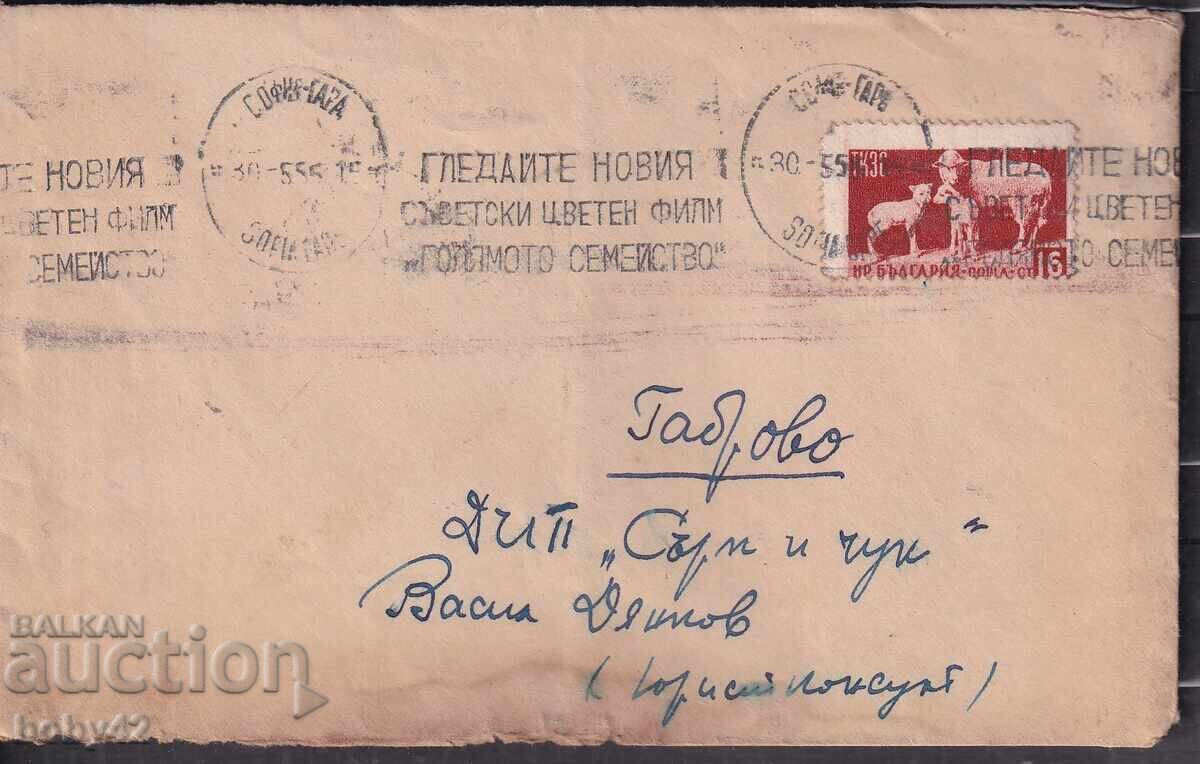 СОФИЯ-ГАРА
СОФИЯ-ГАРА
30.-5.55.15
30.-5.55
SOFIA GARE
SOFIA
ТЕ НОВИЯ
ВЕТЕН ФИЛМ
СЕМЕЙСТВО
ГЛЕДАЙТЕ НОВИЯ
СЪВЕТСКИ ЦВЕТЕН ФИЛМ
„ГОЛЯМОТО СЕМЕЙСТВО"
ГЛЕДАЙТЕ НОВ
СЪВЕТСКИ ЦВЕТЕН
СЕМЕЙ
ТКЗС
НР БЪЛГАРИЯ-ПОЩА-СТ 16
Габрово
ДИП „Сърп и чук"
Васил Дянков
(юрисконсулт)
BALKAN
auction
boby42